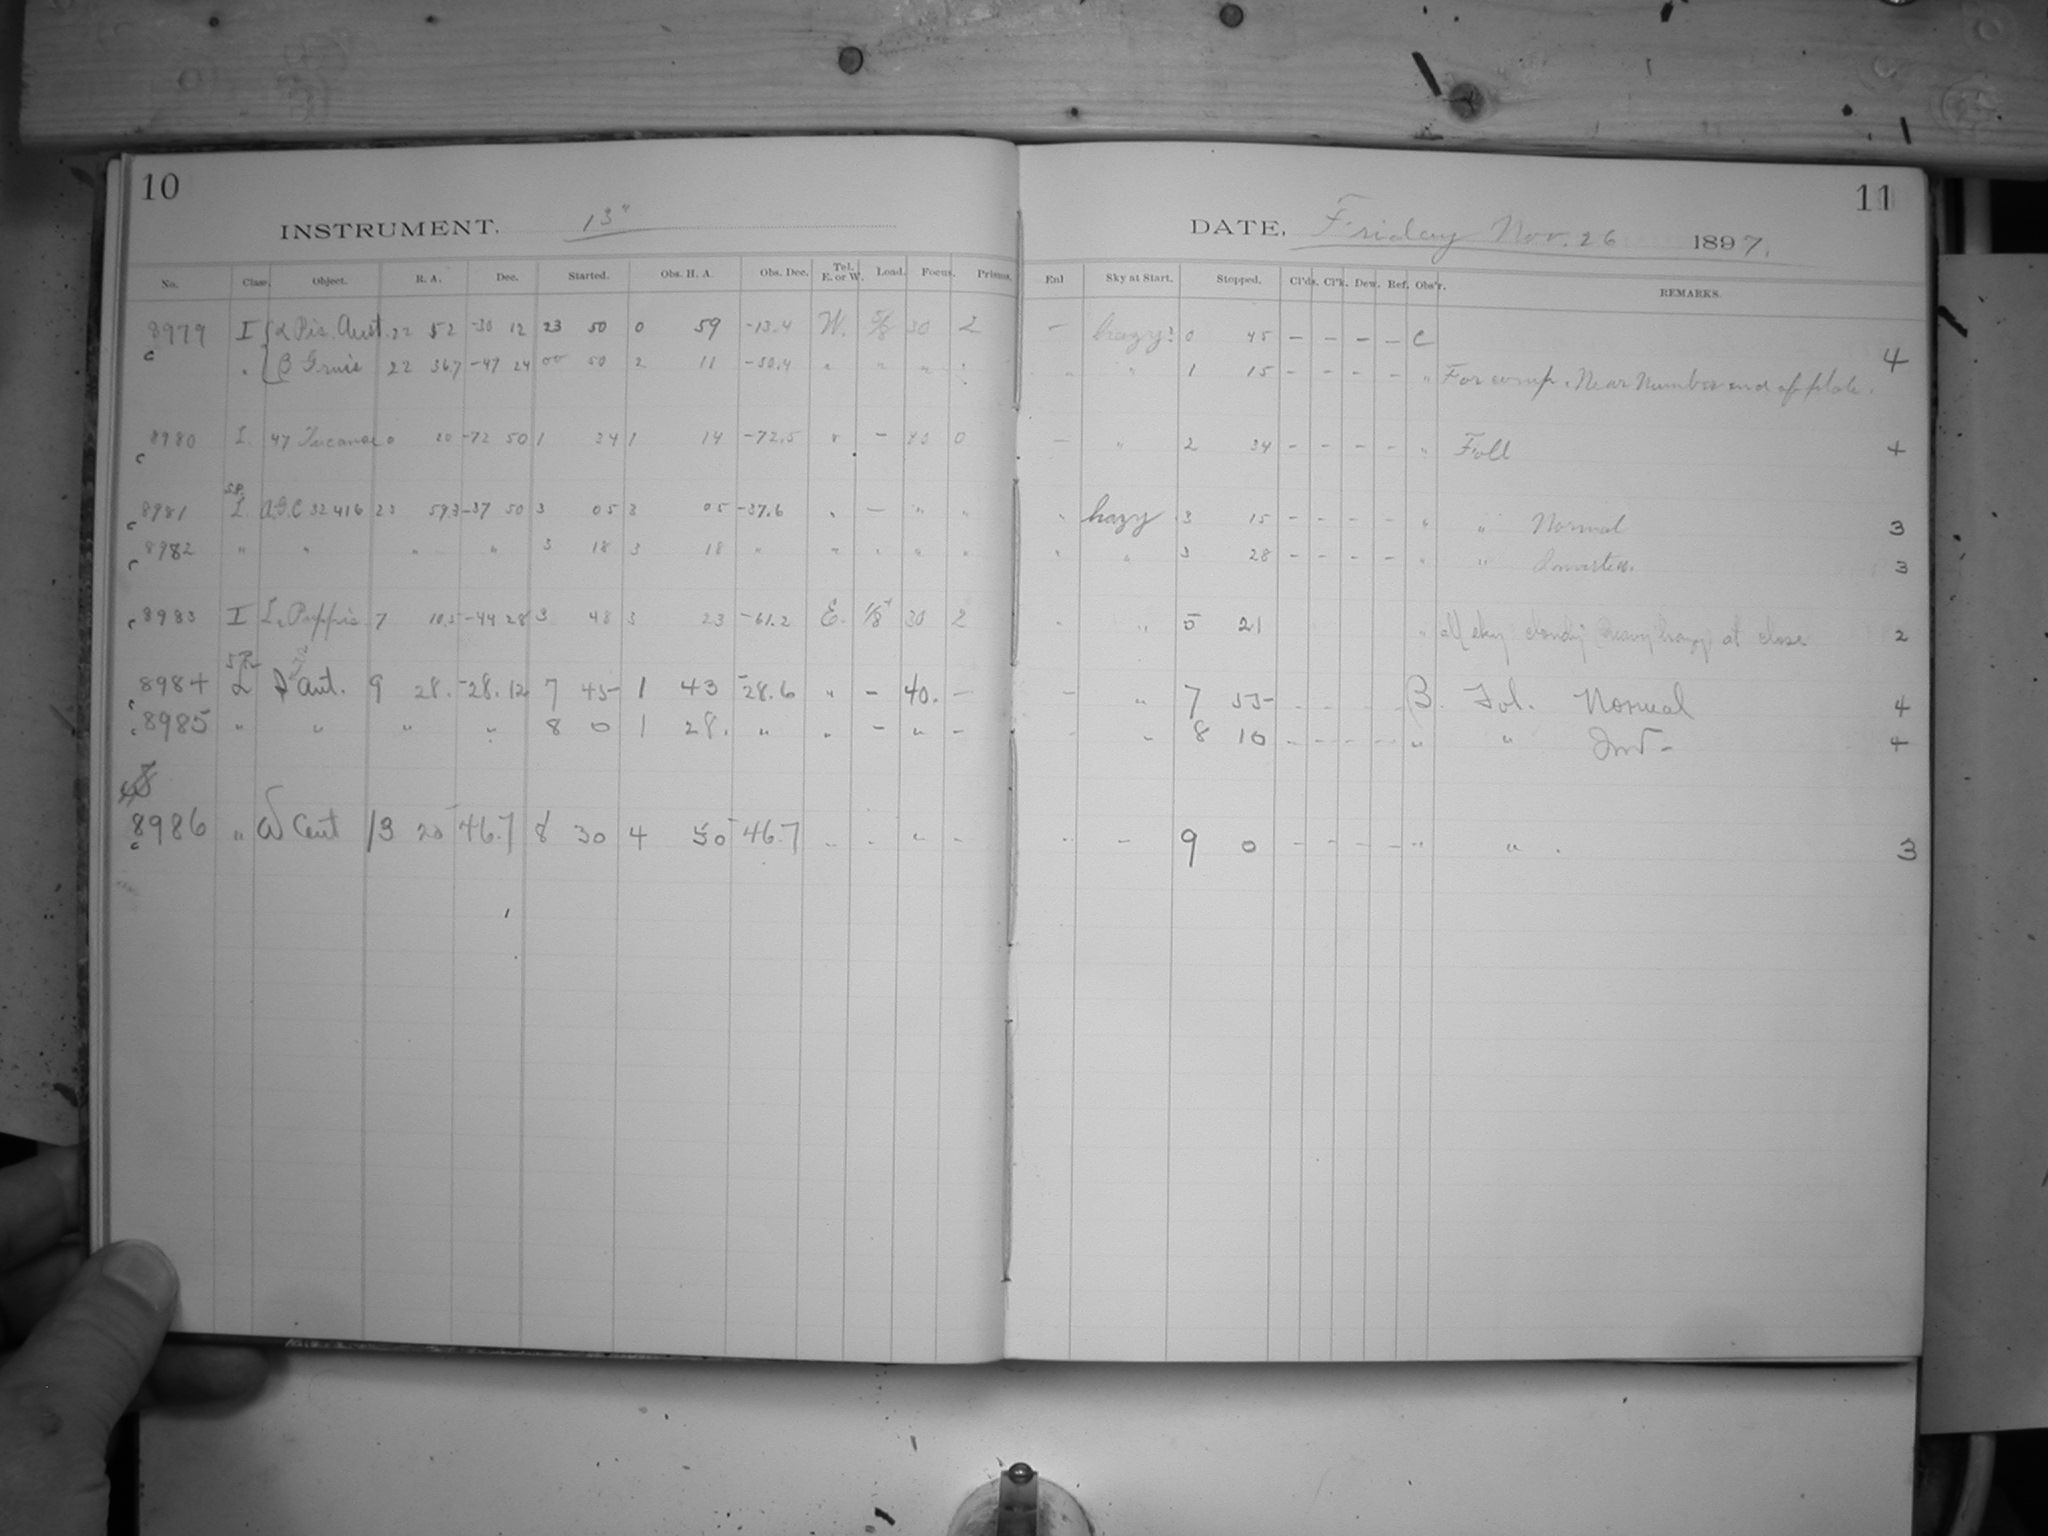 10
INSTRUMENT. 13"
No. Class. Object. R. A. Dec. Started. Obs. H. A. Obs. Dec. Tel. E. or W. Load. Focus. Prisms.
8979 I { α Pis. Aust. 22 52 -30 12 23 50 0 59 -13.4 W. 5/8 30 2
c " { β Gruis 22 36.7 -47 24 00 50 2 11 -50.4 " " " "
8980 I. 47 Tucanae 0 20 -72 50 1 34 1 14 -72.5 " - 40 0
c
S.P.
8981 I. A.G.C 32416 23 59.3 -37 50 3 05 3 05 -37.6 " - " "
c
8982 " " " " 3 18 3 18 " " " " "
c
8983 I L2 Puppis 7 10.5 -44 28 3 48 3 23 -61.2 E. 1/8+ 30 2
c
8984 Ant. 9 28. -28.12 7 45 1 43 -28.6 " - 40. -
c
8985 " " " " 8 0 1 28. " " - " -
c
8986 " ω Cent 13 20 -46.7 8 30 4 50 -46.7 " " " -
c
11
DATE, Friday Nov. 26 1897.
Enl Sky at Start. Stopped. Cl'ds. Cl'k. Dew. Ref. Obs'r. REMARKS.
- hazy? 0 45 - - - - C 4
" " 1 15 - - - - " For comp. Near Number end of plate.
- " 2 34 - - - - " Foll 4
" hazy 3 15 - - - - " " Normal 3
" " 3 28 - - - - " " Inverted. 3
" " 5 21 " all sky cloudy heavy hazy at close 2
- " 7 55 - - - - B. Fol. Normal 4
- " 8 10 - - - - " " Inv- 4
" - 9 0 - - - - " " . 3